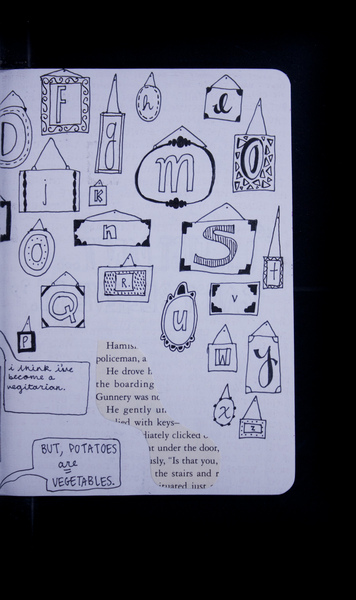 F
h
e
D
g
m
O
j
K
n
S
O
t
R.
Q
u
v
P
W
y
x
z
i think i've
become a
vegitarian.
BUT, POTATOES
are
VEGETABLES.
policeman, a
He drove
the boarding
Gunnery was
He gently
with keys–
diately clicked
under the door,
"Is that you,
the stairs and
just